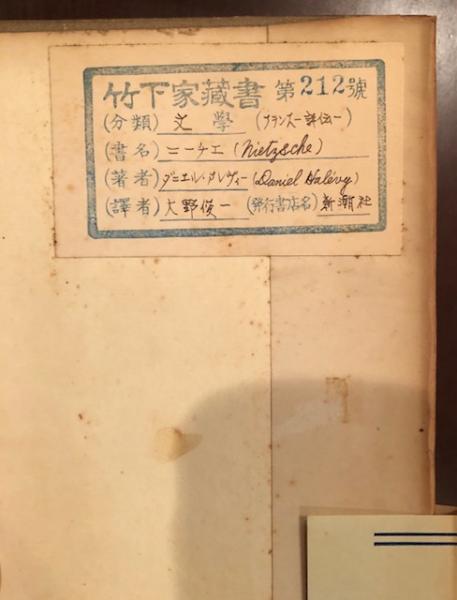 竹下家藏書 第212號
(分類) 文學 (フランス一評伝一)
(書名) ニーチエ (Nietzsche)
(著者) ダニエル・アレヴィー (Daniel Halévy)
(譯者) 大野俊一 (発行書店名) 新潮社